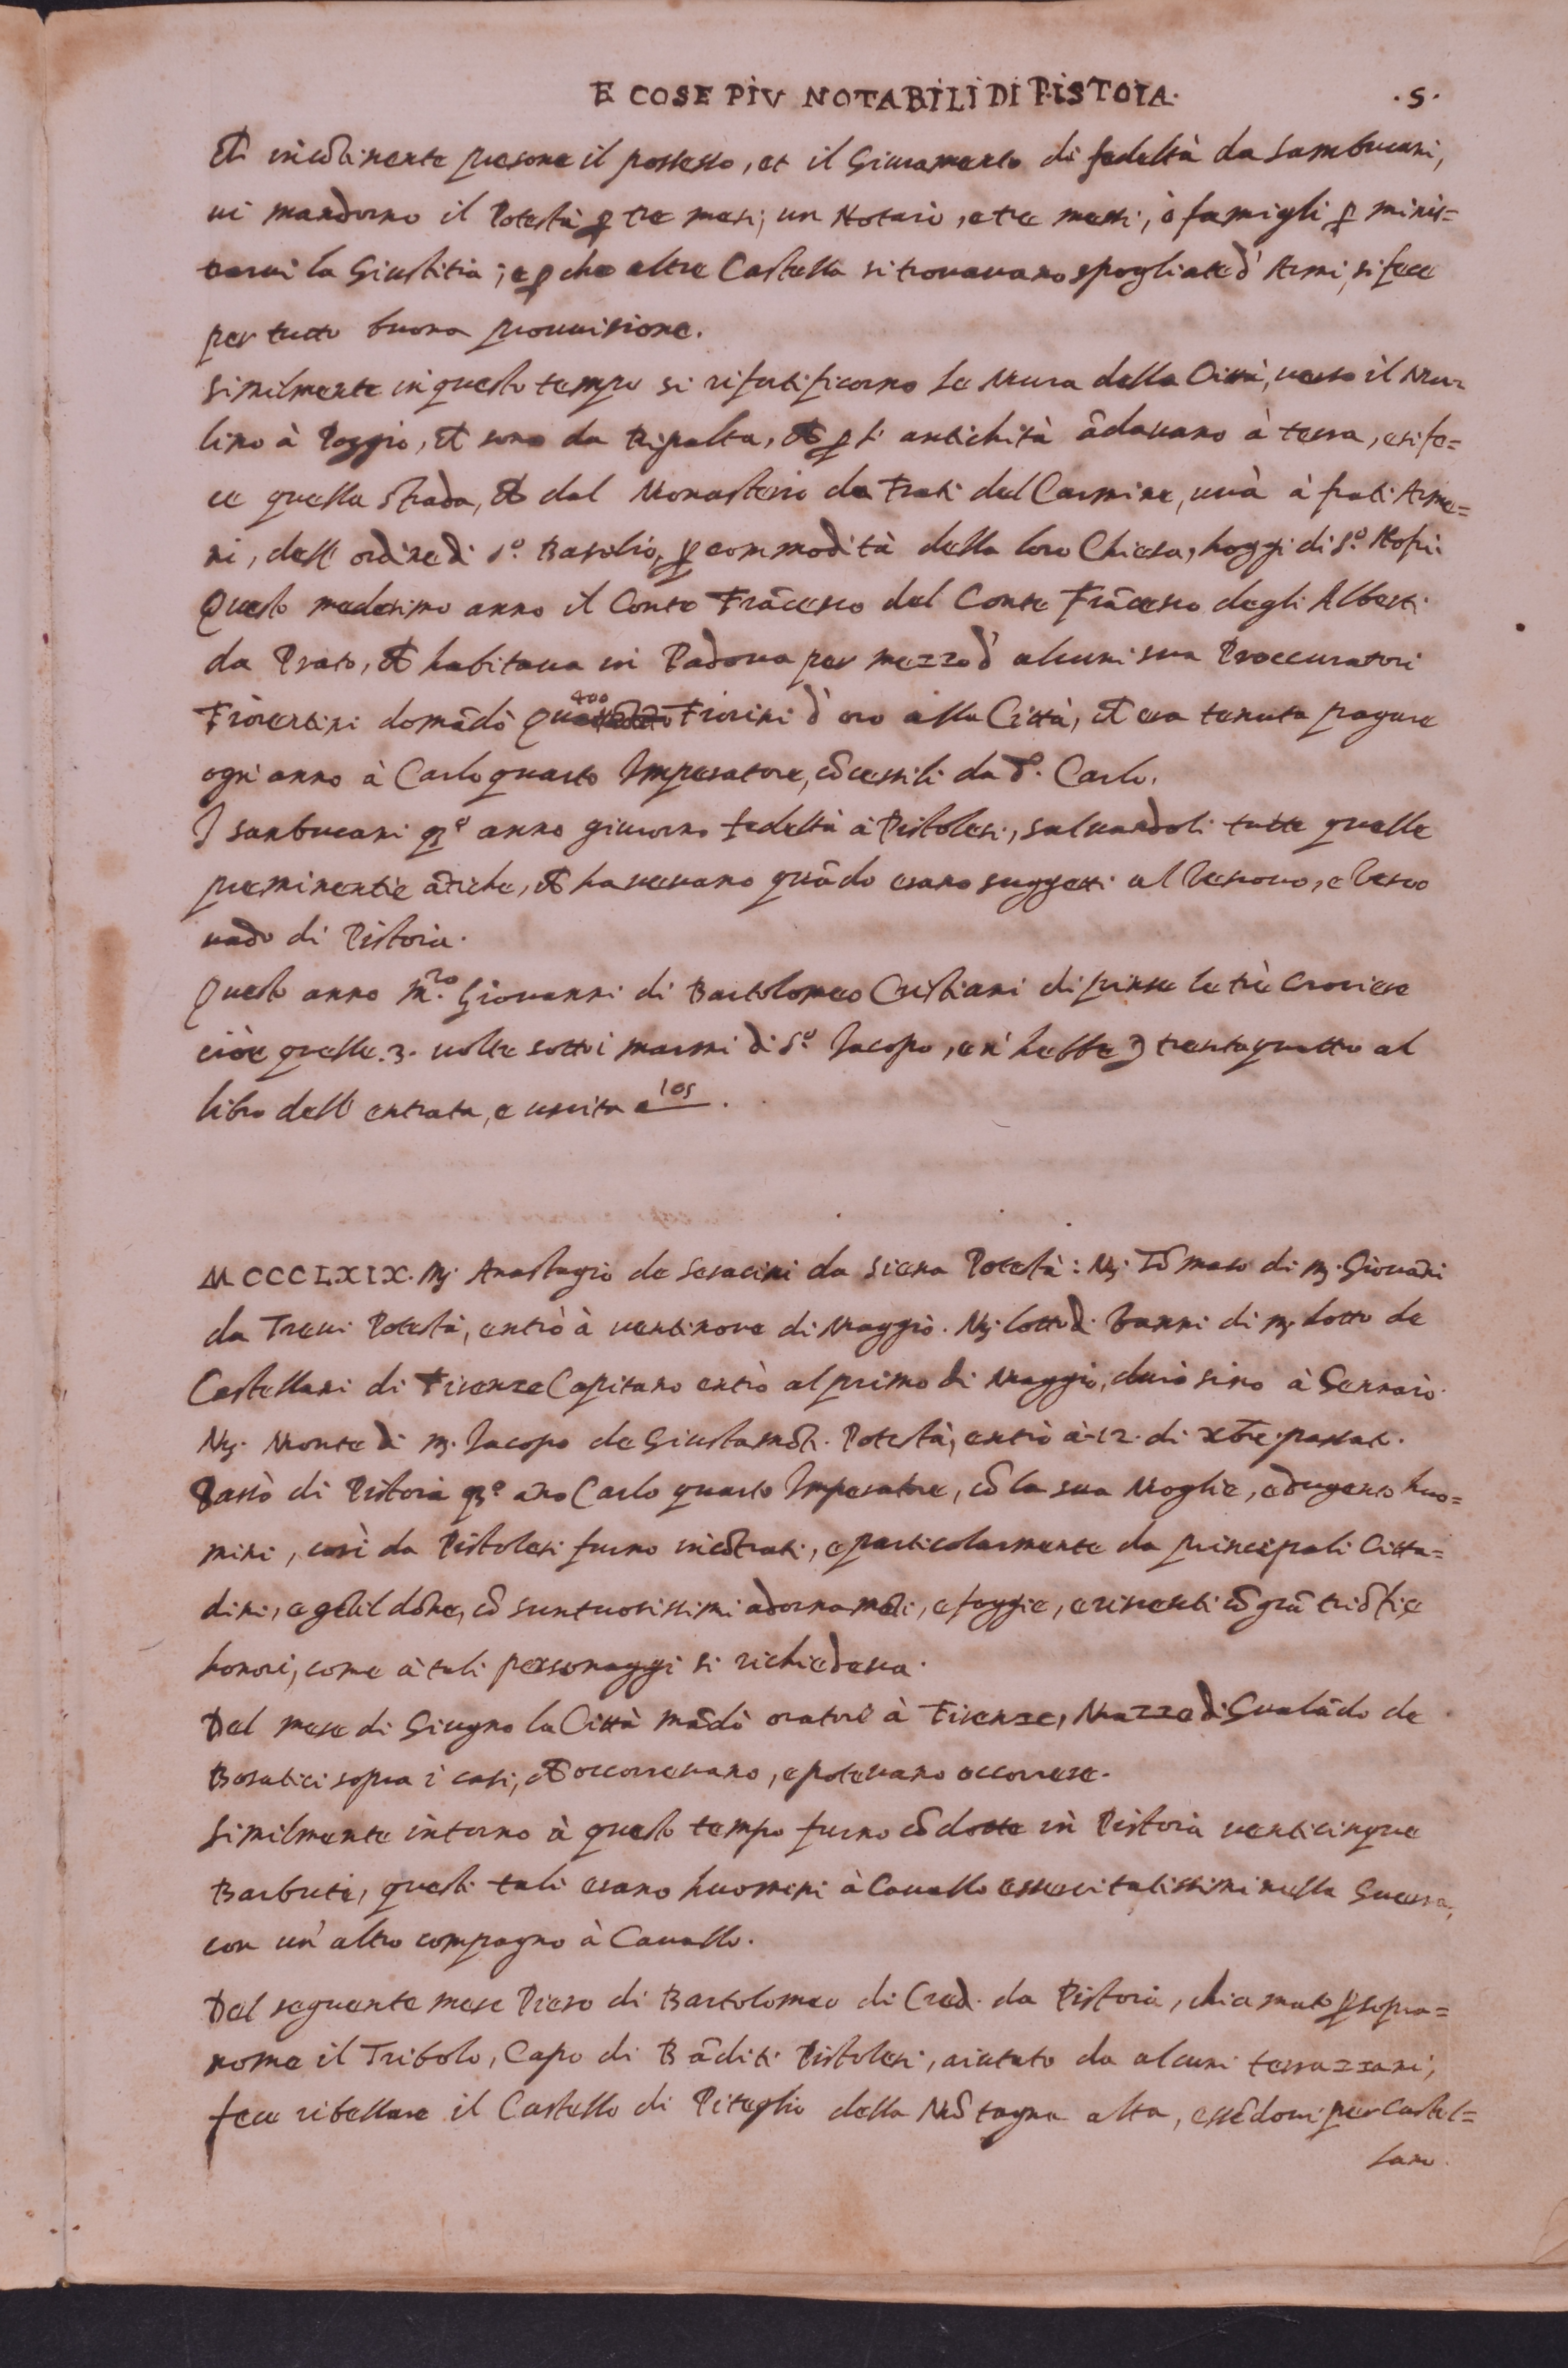 E COSE PIV NOTABILI DI PISTOIA. .5.
Et incōtinente presone il possesso, et il Giuramento di fedeltà da Sambucani,
ui mandorno il Potestà ꝑ tre mesi, un Notaio, e tre messi, ò famigli ꝑ minis=
trarui la Giustitia; e ꝑche altre Castella si trouauano spogliate d' Armi, si fece
per tutto buona prouuisione.
Similmente in questo tempo si rifortificorno le Mura della Città, uerso il Mu=
lino à Poggio, et sono da Ripalta, ch̄ ꝑ l' antichità ādauano à terra, e si fe=
ce quella strada, ch̄ dal Monasterio de Frati del Carmine, uà à frati Arme=
ni, dell' ordine di S.º Basilio, ꝑ commodità della loro Chiesa, hoggi di S.º Nofri.
Questo medesimo anno il Conte Frācesco del Conte Frācesco degli Alberti
da Prato, ch̄ habitaua in Padoua per mezzo d' alcuni sua Proccuratori
Fiorentini domādò 400 Fiorini d' oro alla Città, ch̄ era tenuta pagare
ogni anno à Carlo quarto Imperatore, cōcessili da d.º Carlo.
I sanbucani q.º anno giurorno fedeltà à Pistolesi, saluandoli tutte quelle
preminentie ātiche, ch̄ haueuano quādo erano suggetti al Vescouo, e Vesco
uado di Pistoia.
Questo anno M.ro Giouanni di Bartolomeo Cristiani dipinse le trè Crociere
cioè quelle .3. uolte sotto i marmi di S.º Iacopo, e n' hebbe trentaquattro al
libro dell' entrata, e uscita a 105.
MCCCLXIX. M. Anastagio de Saracini da Siena Potestà: M. Tōmaso di M. Giouāni
da Treui Potestà, entrò à uentinoue di Maggio. M. Lotto di Vanni di M. Lotto de
Castellani di Firenze Capitano entrò al primo di Maggio, durò sino à Gennaio.
M. Monte di M. Iacopo de Giustamōti. Potestà, entrò à 12. di xb̄re passat.
Passò di Pistoia q.º āno Carlo quarto Imperatore, cō la sua Moglie, e dugento huo=
mini, così da Pistolesi furno incōtrati, e particolarmente da principali Citta=
dini, e gētil dōne, cō suntuosissimi adornamēti, e foggie, e riceuuti cō grā triōfi, e
honori, come à tali personaggi si richiedeua.
Del mese di Giugno la Città mādò oratore à Firenze, Mazzeo di Gualādo de
sopra i casi, ch̄ occorreuano, e poteuano occorrere.
Similmente intorno à questo tempo furno cōdotte in Pistoia uenticinque
Barbute, questi tali erano huomini à Cauallo essercitatissimi nella Guerra,
con un' altro compagno à Cauallo.
Del seguente mese Piero di Bartolomeo di Cred. da Pistoia, chiamato ꝑ sopra=
nome il Tribolo, Capo di Bāditi Pistolesi, aiutato da alcuni terrazzani,
fece ribellare il Castello di Piteglio della Mōtagna alta, essēdoui per Castel=
lano